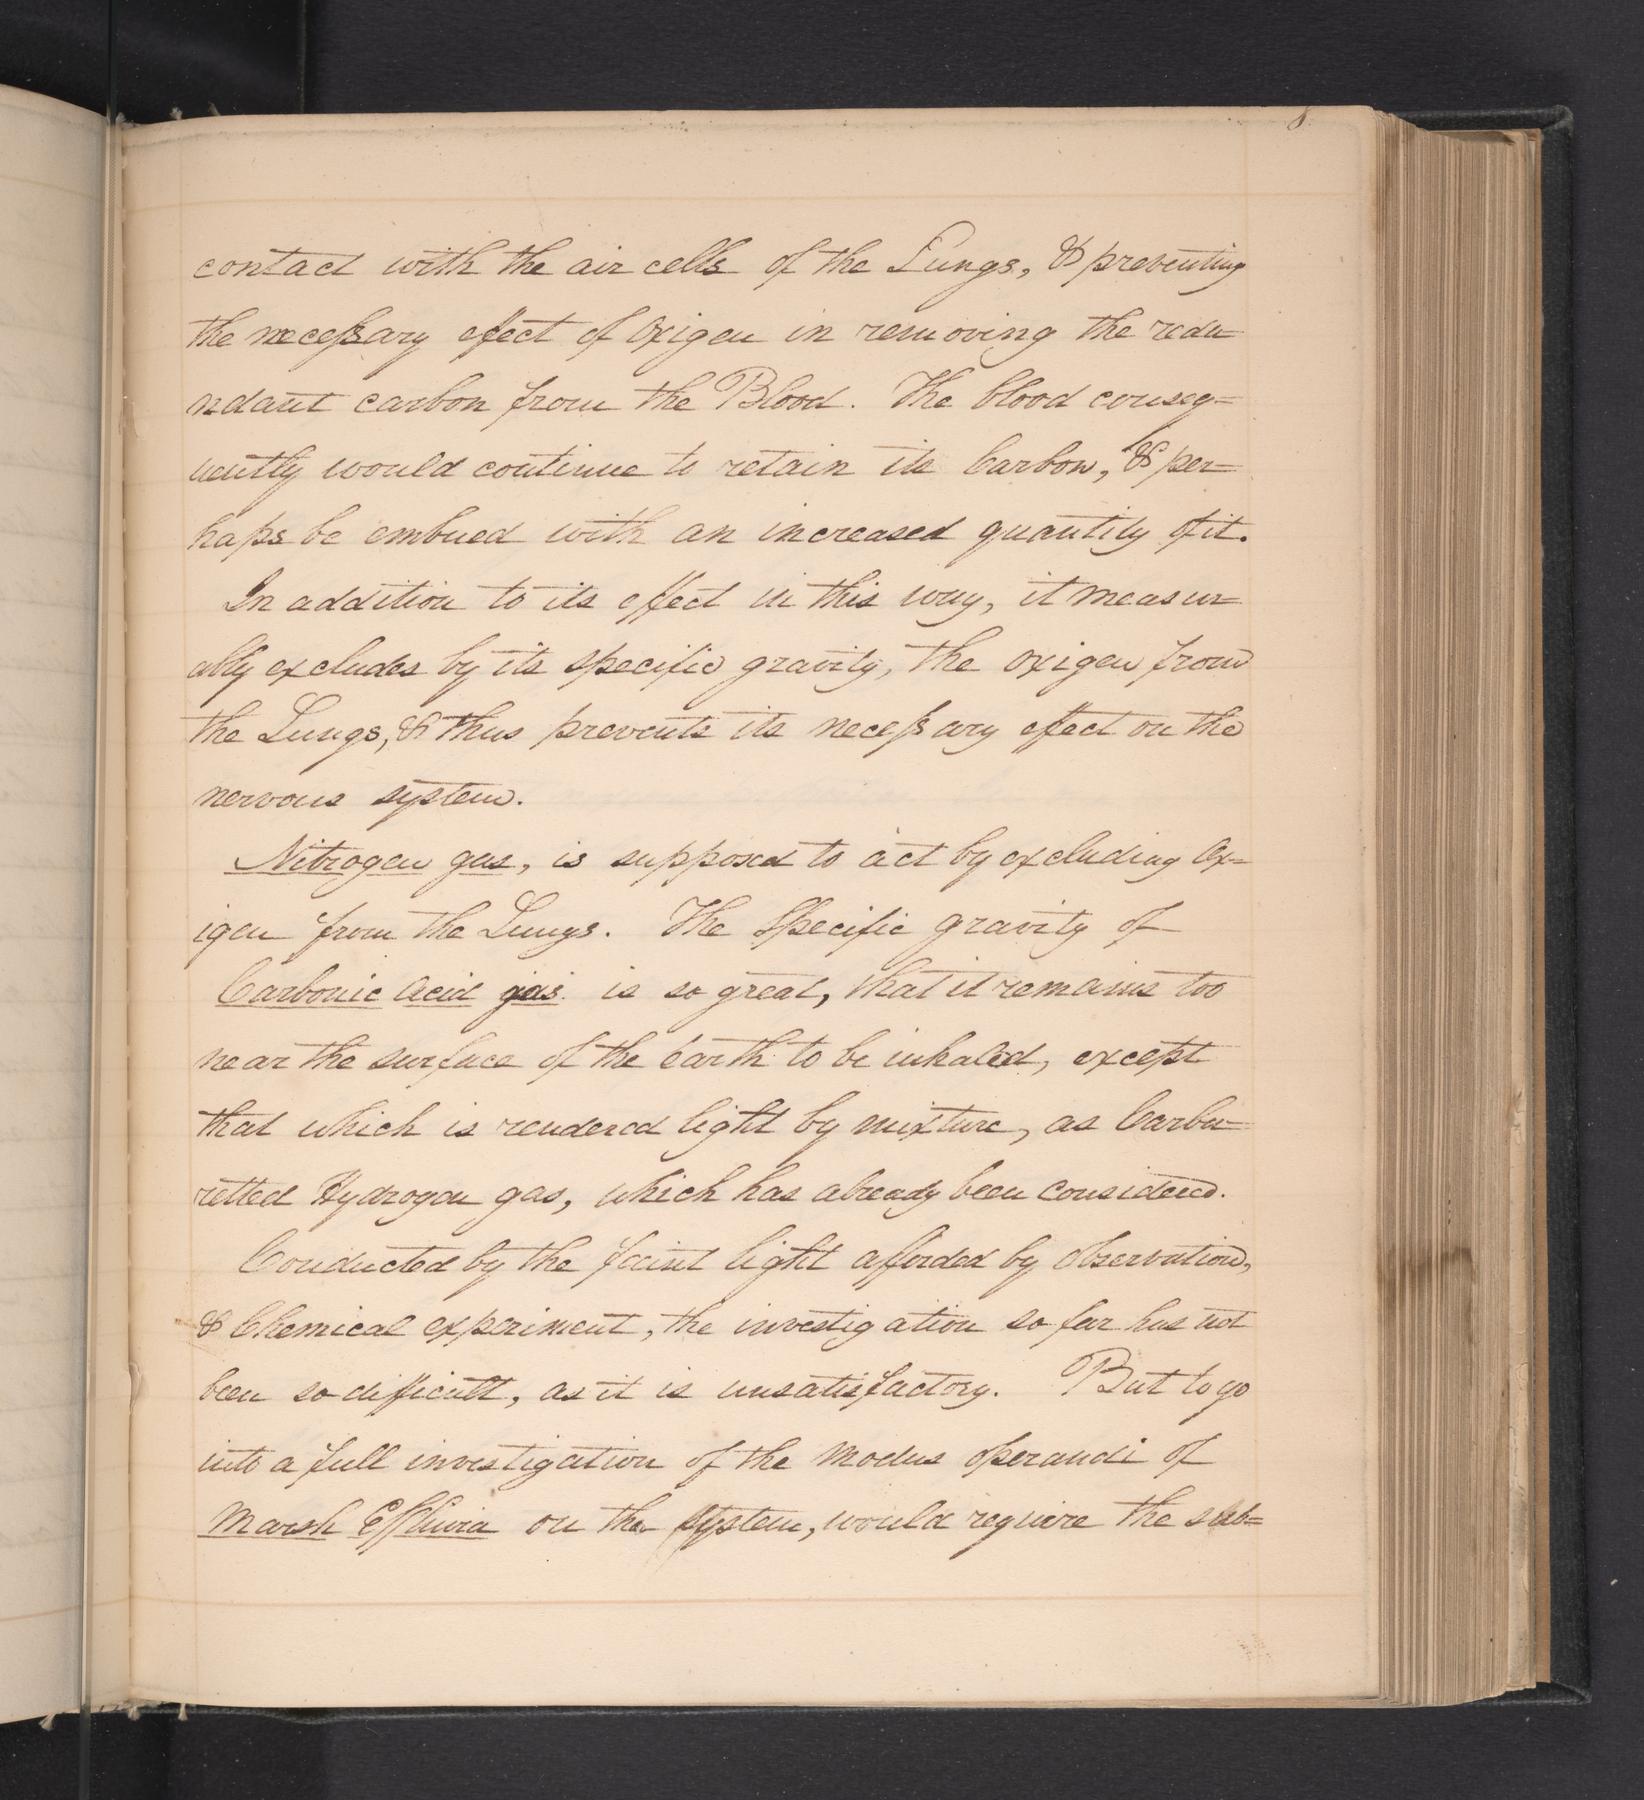 8
contact with the air cells of the Lungs, & preventing
the necessary effect of Oxigen in removing the redu-
ndant carbon from the Blood. The blood conseq=
uently would continue to retain its Carbon, & per=
haps be embued with an increased quantity of it.
In addition to its effect in this way, it measur=
ably excludes by its specific gravity, the oxigen from
the Lungs, & thus prevents its necessary effect on the
nervous system.
Nitrogen gas, is supposed to act by excluding Ox=
igen from the Lungs. The Specific gravity of
Carbonic Acid gas. is so great, that it remains too
near the surface of the Earth to be inhaled, except
that which is rendered light by mixture, as Carbu-
retted Hydrogen gas, which has already been considered.
Conducted by the faint light afforded by Observation,
& Chemical experiment, the investigation so far has not
been so difficult, as it is unsatisfactory. But to go
into a full investigation of the Modus Operandi of
Marsh Effluvia on the System, would require the sub=